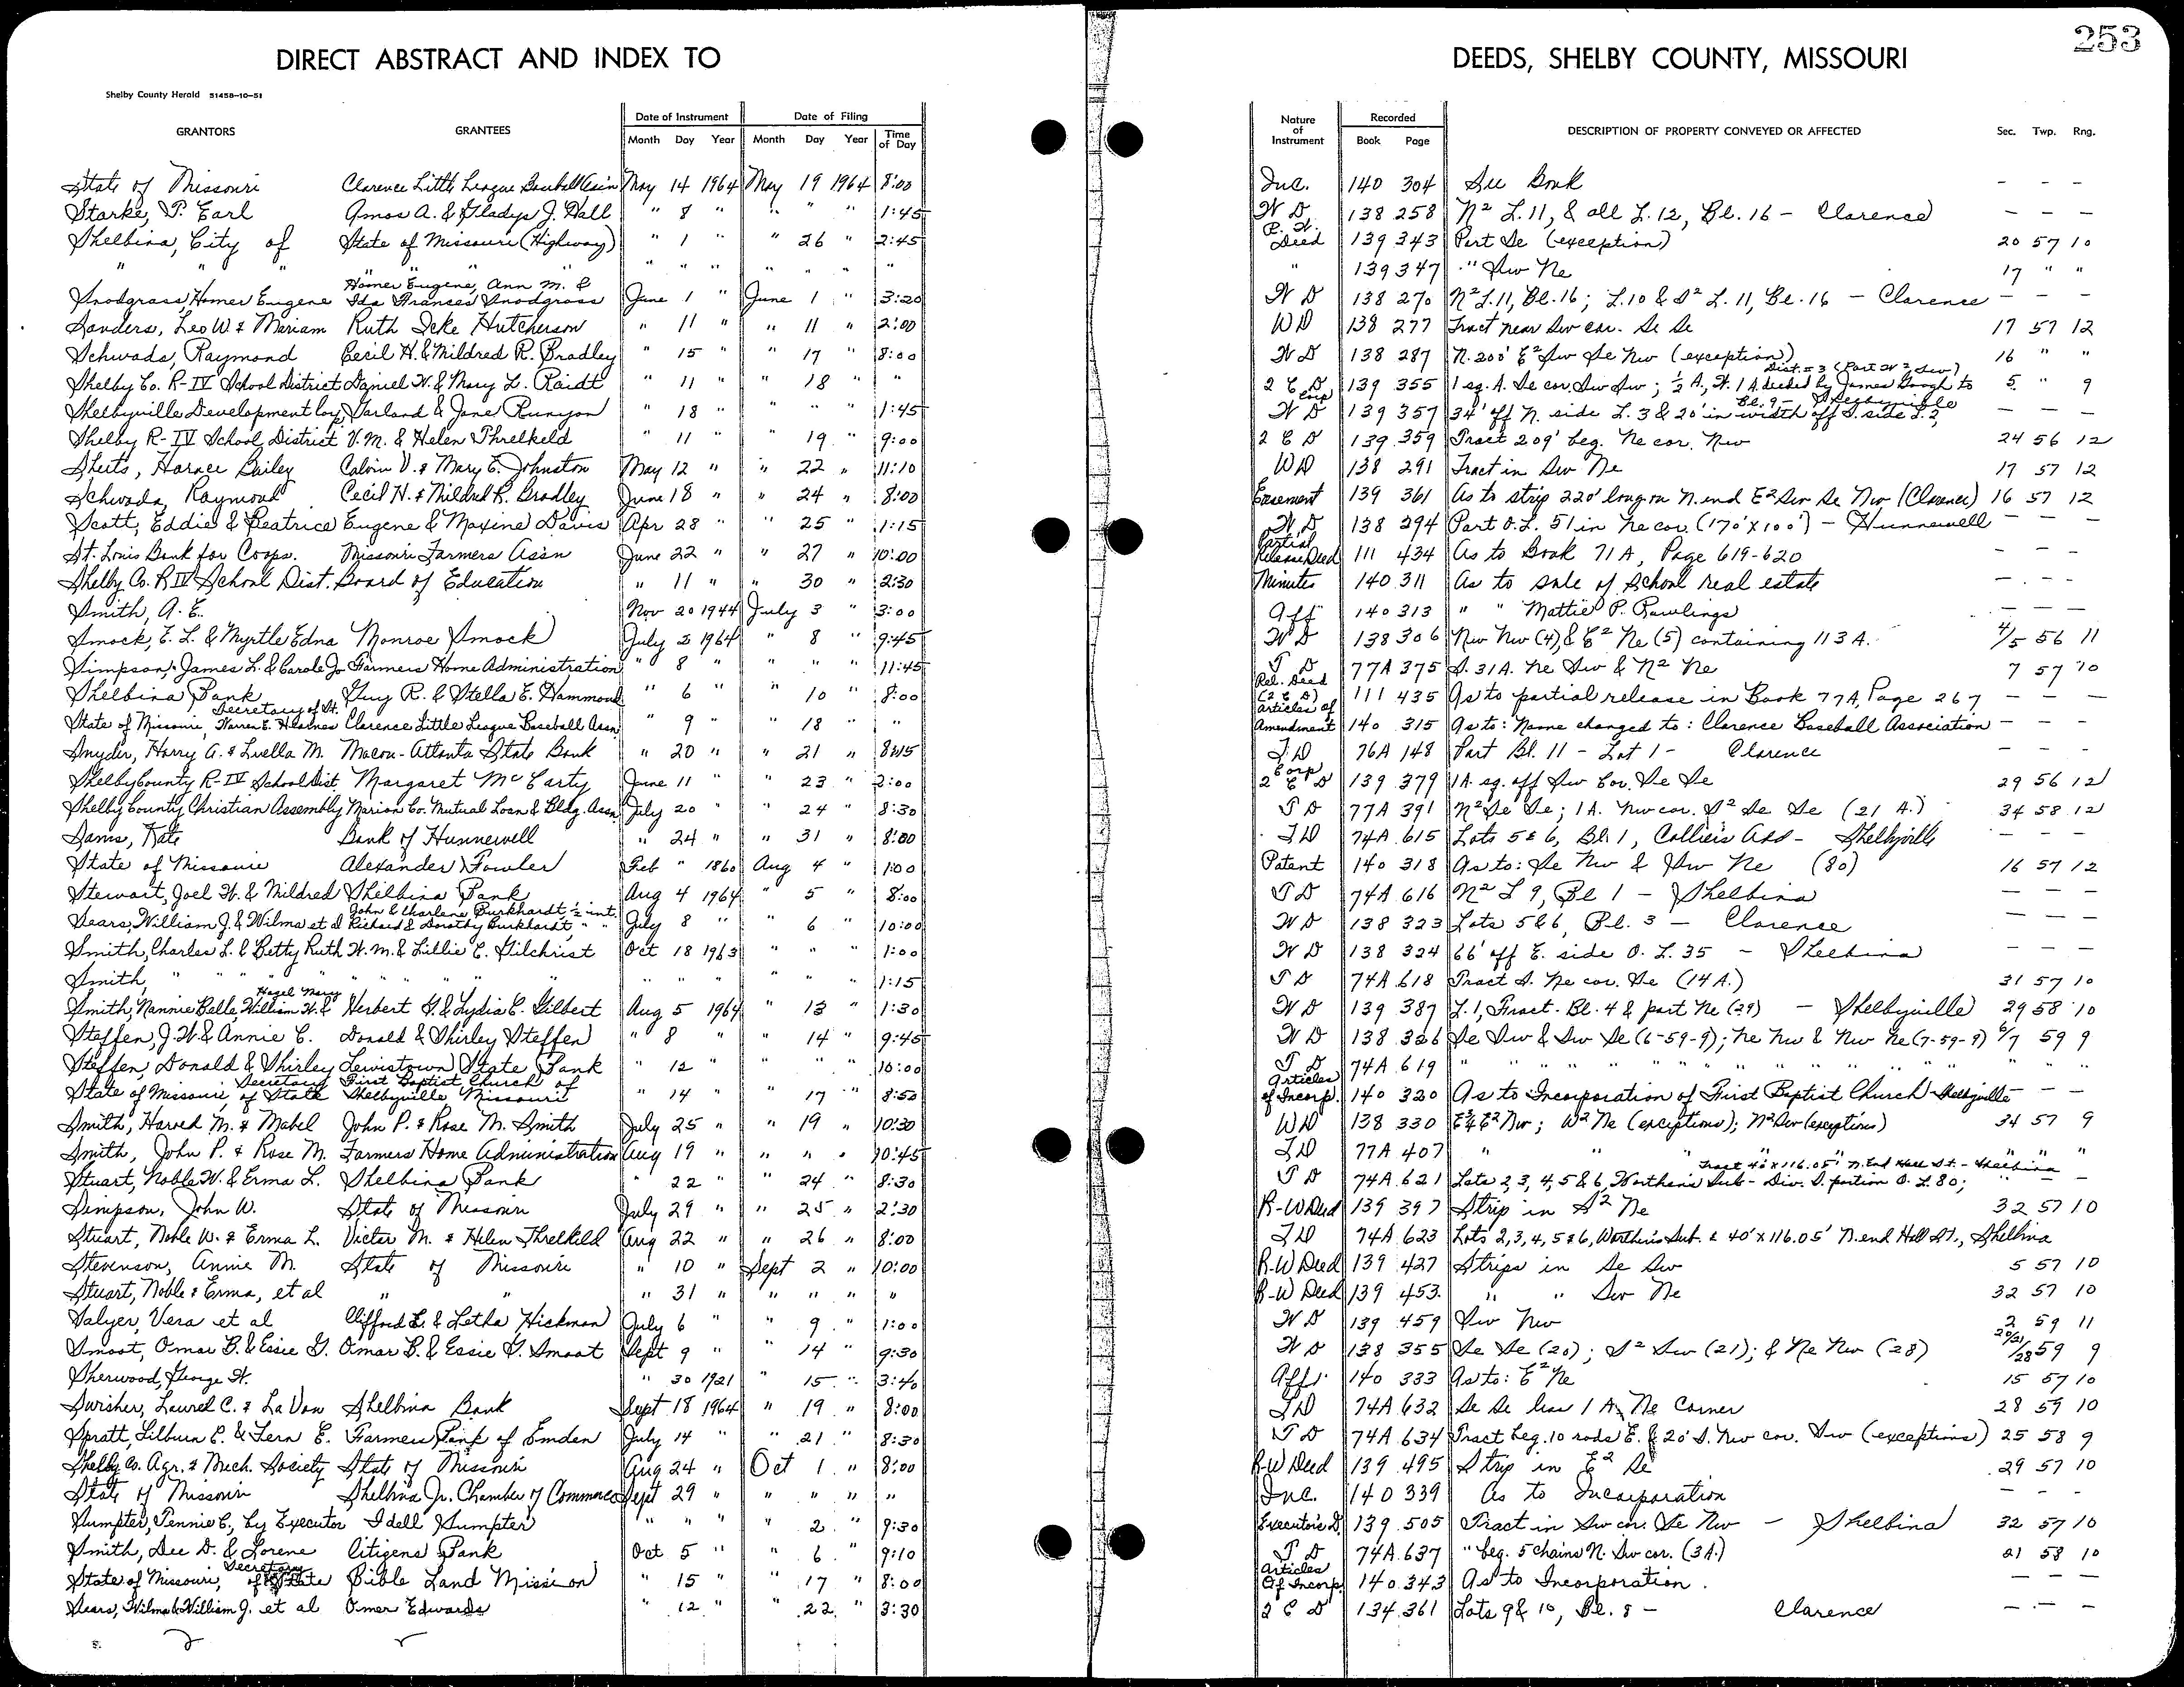 253
DIRECT ABSTRACT AND INDEX TO DEEDS, SHELBY COUNTY, MISSOURI
Shelby County Herald 51458-10-51
GRANTORS GRANTEES Date of Instrument Month Day Year Date of Filing Month Day Year Time of Day Nature of Instrument Recorded Book Page DESCRIPTION OF PROPERTY CONVEYED OR AFFECTED Sec. Twp. Rng.
State of Missouri Clarence Little League Baseball Ass'n May 14 1964 May 19 1964 8:00 Inc. 140 304 See Book - - -
Starke, P. Earl Amos A. & Gladys J. Hall " 8 " " " " 1:45 W D 138 258 N² L.11, & all L.12, Bl. 16 - Clarence - - -
Shelbina, City of State of Missouri (Highway) " 1 " " 26 " 2:45 R. W. Deed 139 343 Part Se (exception) 20 57 10
" " " " " " " " " " " " " 139 347 " Sw Ne 17 " "
Snodgrass, Homer Eugene Homer Eugene, Ann M. & Ida Frances Snodgrass June 1 " June 1 " 3:20 W D 138 270 N² L.11, Bl. 16; L.10 & S² L. 11, Bl. 16 - Clarence - - -
Sanders, Leo W. & Mariam Ruth Icke Hutcherson " 11 " " 11 " 2:00 WD 138 277 Tract near Sw cor. Se Se 17 57 12
Schwada, Raymond Cecil H. & Mildred R. Bradley " 15 " " 17 " 8:00 W D 138 287 N. 200' E² Sw Se Nw (exception) 16 " "
Shelby Co. R-IV School District Daniel W. & Mary L. Raidt " 11 " " 18 " " 2 C D 139 355 1 sq. A. Se cor. Sw Sw; ½ A, W. 1 A. deeded by James Gough to Dist. #3 (Part W² Sw) 5 " 9
Shelbyville Development Corp. Garland & Jane Runyon " 18 " " " " 1:45 Corp W D 139 357 34' off N. side L. 3 & 20' in width off S. side L. 2, Bl. 9 - Shelbyville - - -
Shelby R-IV School District V.M. & Helen Threlkeld " 11 " " 19 " 9:00 2 C D 139 359 Tract 209' beg. Ne cor. Nw 24 56 12
Sheets, Horace Bailey Calvin V. & Mary E. Johnston May 12 " " 22 " 11:10 WD 138 291 Tract in Sw Ne 17 57 12
Schwada, Raymond Cecil H. & Mildred R. Bradley June 18 " " 24 " 8:00 Easement 139 361 As to strip 220' long on N. end E² Sw Se Nw (Clarence) 16 57 12
Scott, Eddie & Beatrice Eugene & Maxine Davis Apr 28 " " 25 " 1:15 W D 138 294 Part O.L. 51 in Ne cor. (170' X 100') - Hunnewell - - -
St. Louis Bank for Coops. Missouri Farmers Ass'n June 22 " " 27 " 10:00 Partial Release Deed 111 434 As to Book 71A, Page 619-620 - - -
Shelby Co. R IV School Dist. Board of Education " 11 " " 30 " 2:30 Minutes 140 311 As to sale of school real estate - - -
Smith, A. E. Nov 20 1944 July 3 " 3:00 Aff 140 313 " " Mattie P. Rawlings - - -
Smock, E. L. & Myrtle Edna Monroe Smock July 2 1964 " 8 " 9:45 W D 138 306 Nw Nw (4), & E² Ne (5) containing 113 A. 4/5 56 11
Simpson, James L. & Carole Jo Farmers Home Administration " 8 " " " " 11:45 T D 77A 375 S. 31A. Ne Sw & N² Ne 7 57 10
Shelbina Bank Guy R. & Stella E. Hammond " 6 " " 10 " 8:00 Rel. Deed (2 C D) 111 435 As to partial release in Book 77A, Page 267 - - -
State of Missouri, Secretary of St. Warren E. Hearnes Clarence Little League Baseball Assn " 9 " " 18 " " Articles of Amendment 140 315 As to: Name changed to: Clarence Baseball Association - - -
Snyder, Harry A. & Luella M. Macon-Atlanta State Bank " 20 " " 21 " TD 76A 148 Part Bl. 11 - Lot 1 - Clarence - - -
Shelby County R-IV School Dist, Margaret McCarty June 11 " " 23 " 2:00 Corp 2 C D 139 379 1A. sq. off Sw Cor. Se Se 29 56 12
Shelby County Christian Assembly Marion Co. Mutual Loan & Bldg. Assn July 20 " " 24 " 8:30 T D 77A 391 N² Se Se; 1 A. Nw cor. S² Se Se (21 A.) 34 58 12
Sams, Kate Bank of Hunnewell " 24 " " 31 " 8:00 TD 74A 615 Lots 5 & 6, Bl. 1, Collier's Add - Shelbyville - - -
State of Missouri Alexander Fowler Feb " 1860 Aug 4 " 1:00 Patent 140 318 As to: Se Nw & Sw Ne (80) 16 57 12
Stewart, Joel W. & Mildred Shelbina Bank Aug 4 1964 " 5 " 8:00 T D 74A 616 N² L 9, Bl 1 - Shelbina - - -
Sears, William J. & Wilma et al John & Charlene Burkhardt, ½ int. Richard & Dorothy Burkhardt, " " July 8 " " 6 " 10:00 W D 138 323 Lots 5 & 6, Bl. 3 - Clarence - - -
Smith, Charles L. & Betty Ruth W. M. & Lillie C. Gilchrist Oct 18 1963 " " " 1:00 W D 138 324 66' off E. side O. L. 35 - Shelbina - - -
Smith, " " " " " " " " " " " " " 1:15 T D 74A 618 Tract S. Ne cor. Se (14 A.) 31 57 10
Smith, Nannie Belle, William H. & Hazel Mary Herbert G. & Lydia C. Gilbert Aug 5 1964 " 13 " 1:30 W D 139 387 L. 1, Fract. Bl. 4 & part Ne (29) - Shelbyville 29 58 10
Steffen, J. W. & Annie C. Donald & Shirley Steffen " 8 " " 14 " 9:45 W D 138 326 Se Sw & Sw Se (6-59-9); Ne Nw & Nw Ne (7-59-9) 6/7 59 9
Steffen, Donald & Shirley Lewistown State Bank " 12 " " " " 10:00 T D 74A 619 " " " " " " " " " "
State of Missouri, Secretary of State First Baptist Church of Shelbyville Missouri " 14 " " 17 " 8:50 Articles of Incorp. 140 320 As to Incorporation of First Baptist Church - Shelbyville - - -
Smith, Harved M. & Mabel John P. & Rose M. Smith July 25 " " 19 " 10:30 WD 138 330 E¾ E² Nw; W² Ne (exceptions); N² Sw (exceptions) 34 57 9
Smith, John P. & Rose M. Farmers Home Administration Aug 19 " " " " 10:45 TD 77A 407 " " " " " "
Stuart, Noble W. & Erma L. Shelbina Bank " 22 " " 24 " 8:30 T D 74A 621 Lots 2, 3, 4, 5 & 6, Worthen's Sub-Div. S. portion O. L. 80; Tract 40' X 116.05' N. End Hall St. - Shelbina - - -
Simpson, John W. State of Missouri July 29 " " 25 " 2:30 R-W Deed 139 397 Strip in S² Ne 32 57 10
Stuart, Noble W. & Erma L. Victor M. & Helen Threlkeld Aug 22 " " 26 " 8:00 TD 74A 623 Lots 2, 3, 4, 5 & 6, Worthen's Sub. & 40' X 116.05' N. end Hall St., Shelbina
Stevenson, Annie M. State of Missouri " 10 " Sept 2 " 10:00 R-W Deed 139 427 Strips in Se Sw 5 57 10
Stuart, Noble & Erma, et al " " " 31 " " " " " R-W Deed 139 453 " " Sw Ne 32 57 10
Salyer, Vera et al Clifford E. & Letha Hickman July 6 " " 9 " 1:00 W D 139 459 Sw Nw 2 59 11
Smoot, Omar B. & Essie G. Omar B. & Essie G. Smoot Sept 9 " " 14 " 9:30 W D 138 355 Se Se (20); S² Sw (21); & Ne Nw (28) 20/21/28 59 9
Sherwood, George H. " 30 1921 " 15 " 3:40 Aff. 140 333 As to: E² Ne 15 57 10
Swisher, Laurel C. & LaVon Shelbina Bank Sept 18 1964 " 19 " 8:00 TD 74A 632 Se Se less 1 A. Ne Corner 28 59 10
Spratt, Lilburn E. & Fern E. Farmers Bank of Emden July 14 " " 21 " 8:30 T D 74A 634 Tract beg. 10 rods E. & 20' S. Nw cor. Sw (exceptions) 25 58 9
Shelby Co. Agr. & Mech. Society State of Missouri Aug 24 " Oct 1 " 8:00 R-W Deed 139 495 Strip in E² Se 29 57 10
State of Missouri Shelbina Jr. Chamber of Commerce Sept 29 " " " " " Inc. 140 339 As to Incorporation - - -
Sumpter, Pennie C., by Executor Idell Sumpter " " " " 2 " 9:30 Executor's D. 139 505 Tract in Sw cor. Se Nw - Shelbina 32 57 10
Smith, Dee D. & Lorene Citizens Bank Oct 5 " " 6 " 9:10 T D 74A 637 " beg. 5 chains N. Sw cor. (3A.) 21 58 10
State of Missouri, Secretary of State Bible Land Mission " 15 " " 17 " 8:00 Articles Of Incorp. 140 343 As to Incorporation. - - -
Sears, Wilma & William J. et al Omer Edwards " 12 " " 22 " 3:30 2 C D 134 361 Lots 9 & 10, Bl. 8 - Clarence - - -